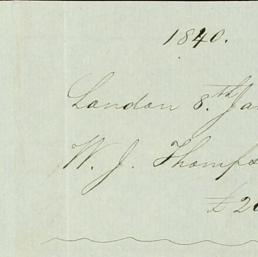 1840.
London 8.th Jan
W. J. Thomps
£ 20